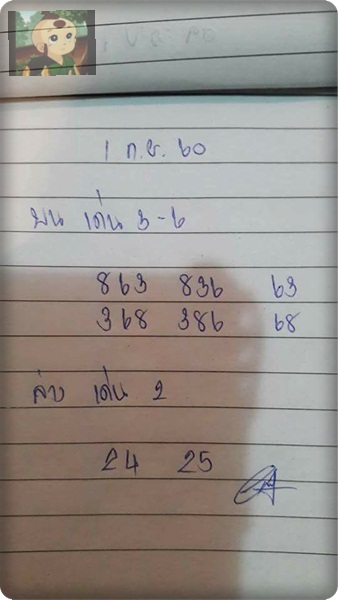 1 ก.ย. 60
บน เด่น 3-6
863 836 63
368 386 68
ล่าง เด่น 2
24 25